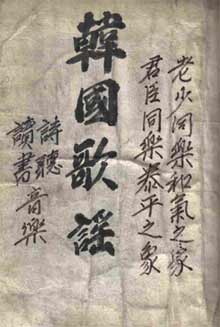 老少同樂和氣之家
君臣同樂泰平之象
韓國歌謠
詩聽
讀書
音樂